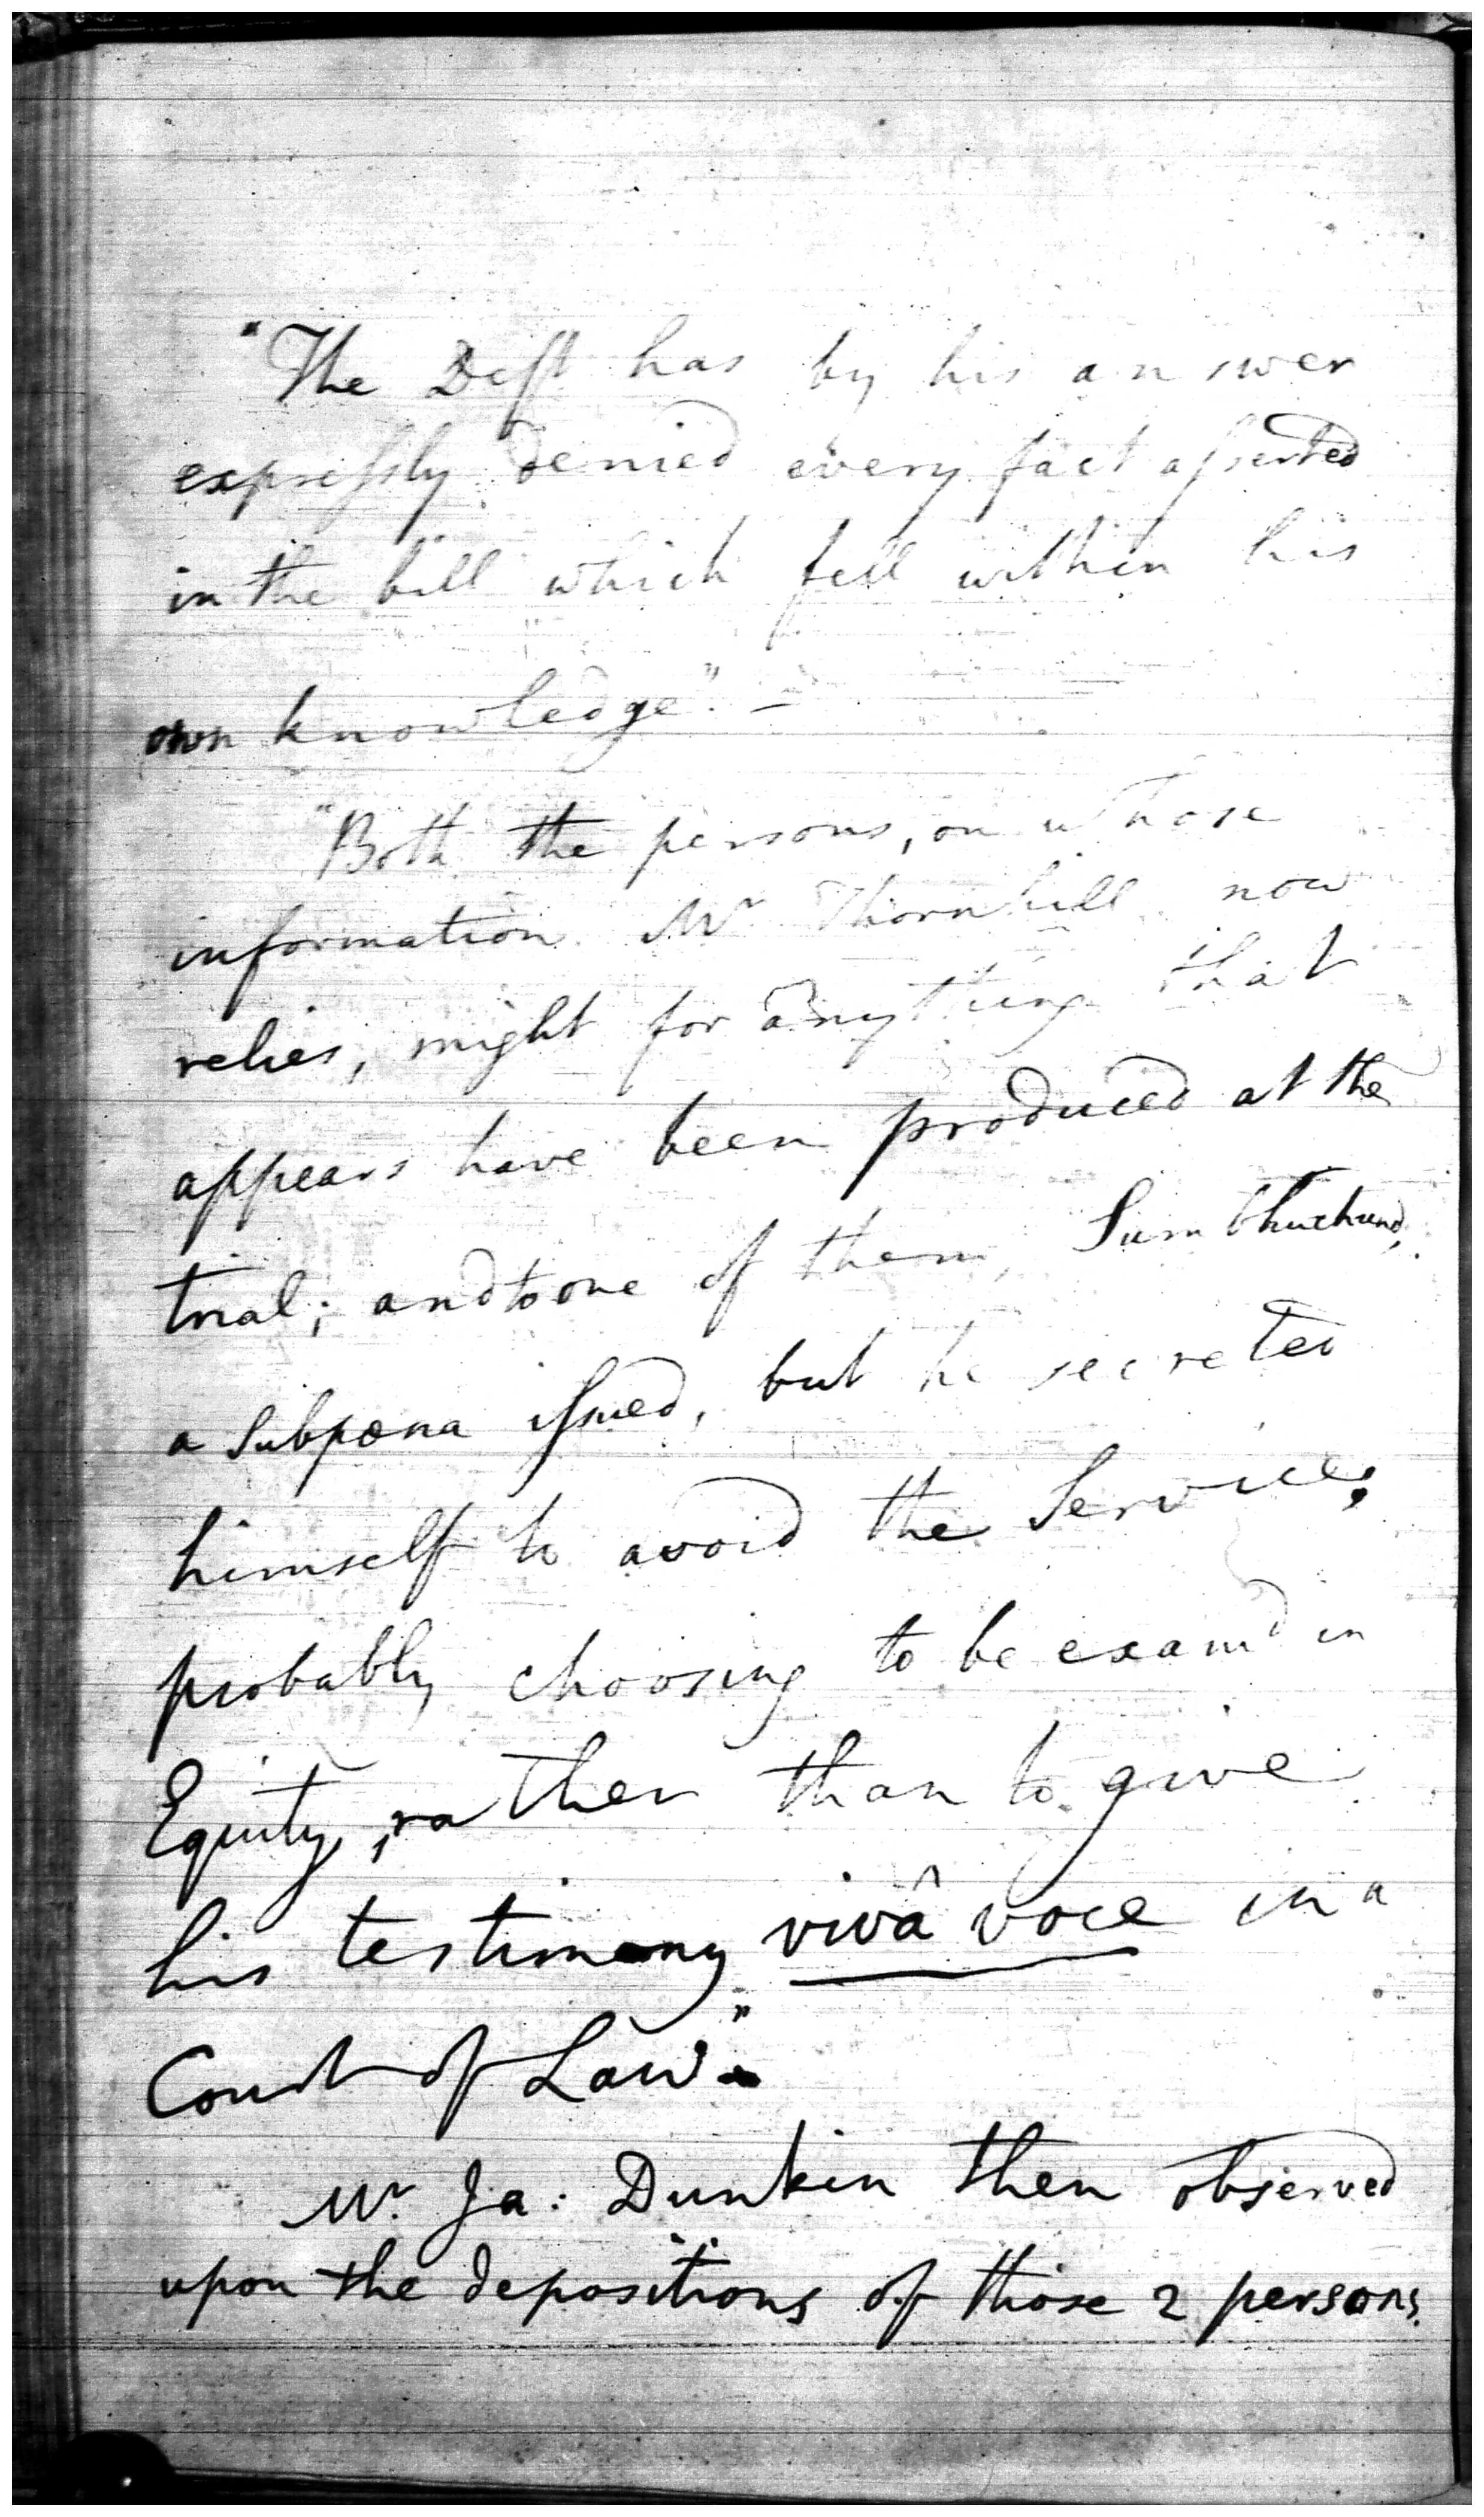 "The Deft has by his answer
expressly denied every fact asserted
in the bill which fell within his
own knowledge". -
"Both the persons, on whose
information Mr Thornhill now
relies, might for anything that
appears have been produced at the
trial; and to one of them,
a Subpœna issued, but he secreted
himself to avoid the Service,
probably choosing to be examd in
Equity, rather than to give
his testimony vivâ voce in a
Court of Law."
Mr. Ja: Dunkin then observed
upon the depositions of those 2 persons